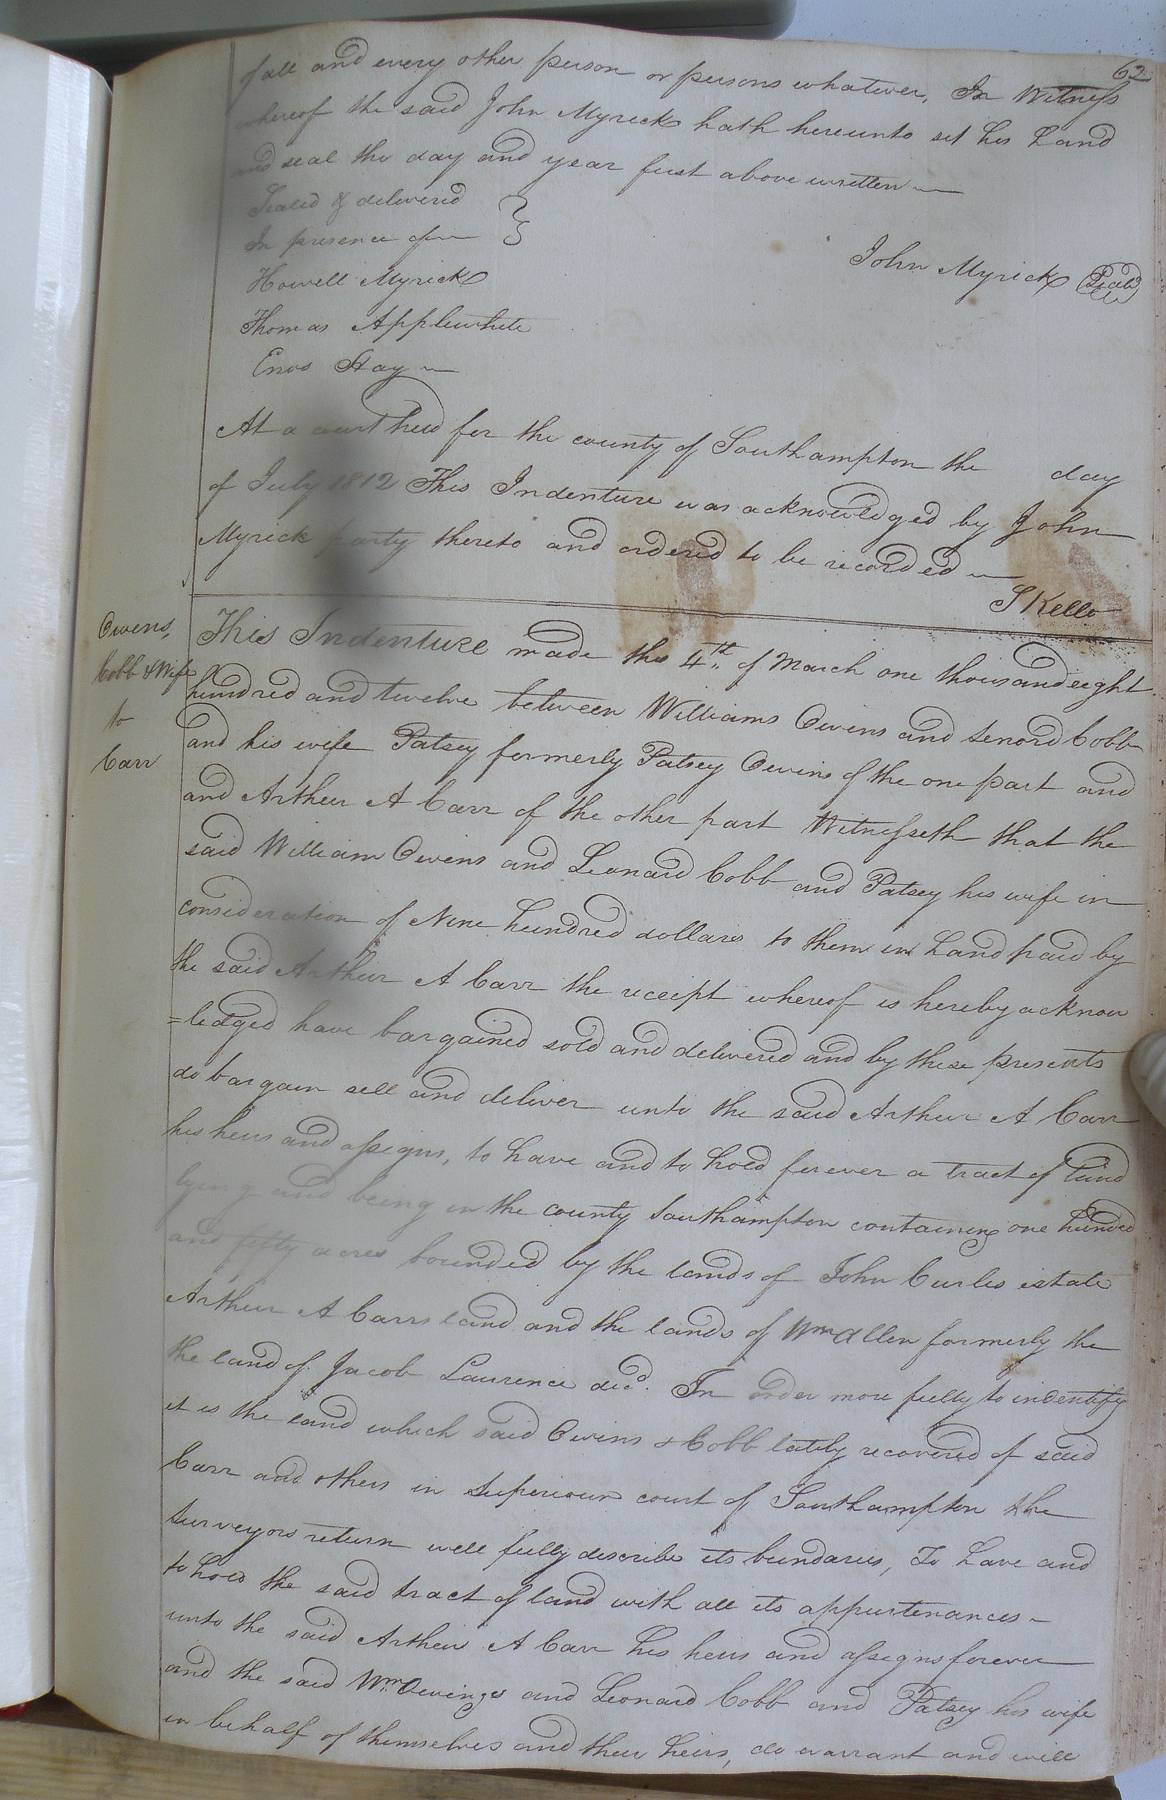 62
of all and every other person or persons whatever, In Witness
whereof the said John Myrick hath hereunto set his hand
and seal the day and year first above written
Sealed & delivered
In presence of
John Myrick (Seal)
Howell Myrick
Thomas Applewhite
Enos Hay
At a court held for the county of Southampton the day
of July 1812 This Indenture was acknowledged by John
Myrick party thereto and ordered to be recorded
S Kello
Owens,
Cobb & Wife
to
Carr
This Indenture made this 4th of March one thousand eight
hundred and twelve between Williams Owens and Lenord Cobb
and his wife Patsey formerly Patsey Owens of the one part and
and Arthur A Carr of the other part Witnesseth that the
said William Owens and Leonard Cobb and Patsey his wife in
consideration of Nine hundred dollars to them in hand paid by
the said Arthur A Carr the receipt whereof is hereby acknow
=ledged have bargained sold and delivered and by these presents
do bargain sell and deliver unto the said Arthur A Carr
his heirs and assigns, to have and to hold forever a tract of land
lying and being in the county Southampton containing one hundred
and fifty acres bounded by the lands of John Curles estate
Arthur A Carrs land and the lands of Wm Allen formerly the
the land of Jacob Laurence decd. In order more fully to indentify
it is the land which said Owens & Cobb lately recovered of said
Carr and others in Superiour court of Southampton the
surveyors return will fully describe its bundaries, To have and
to hold the said tract of land with all its appurtenances
unto the said Arthur A Carr his heirs and assigns forever
and the said Wm Owings and Leonard Cobb and Patsey his wife
in behalf of themselves and their heirs, do warrant and will